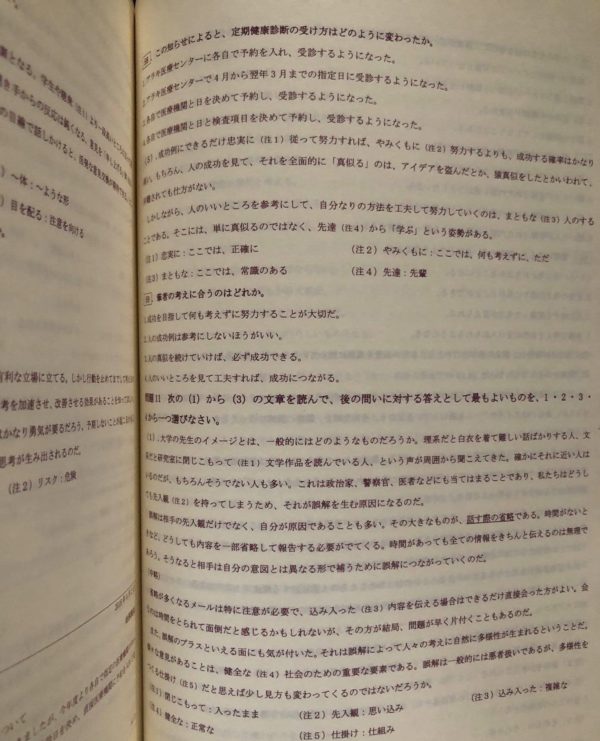 この知らせによると、定期健康診断の受け方はどのように変わったか。
1.アタキ医療センターに各自で予約を入れ、受診するようになった。
アタキ医療センターで4月から翌年3月までの指定日に受診するようになった。
各自で医療機関と日を決めて予約し、受診するようになった。
4.各自で医療機関と日と検査項目を決めて予約し、受診するようになった。
(5).成功例にできるだけ忠実に(注1)従って努力すれば、やみくもに(注2)努力するよりも、成功する確率はかなり
もちろん、人の成功を見て、それを全面的に「真似る」のは、アイデアを盗んだとか、猿真似をしたとかいわれて、
されても仕方がない。
しかしながら、人のいいところを参考にして、自分なりの方法を工夫して努力していくのは、まともな(注3)人のする
ことである。そこには、単に真似るのではなく、先達(注4)から「学ぶ」という姿勢がある。
(注1)忠実に:ここでは、正確に
(注2)やみくもに:ここでは、何も考えずに、ただ
(注3)まともな:ここでは、常識のある
(注4)先達:先輩
筆者の考えに合うのはどれか。
1.成功を目指して何も考えずに努力することが大切だ。
2.人の成功例は参考にしないほうがいい。
3.人の真似を続けていけば、必ず成功できる。
4.人のいいところを見て工夫すれば、成功につながる。
問題11 次の(1)から(3)の文章を読んで、後の問いに対する答えとして最もよいものを、1・2・3・
4から一つ選びなさい。
(1).大学の先生のイメージとは、一般的にはどのようなものだろうか。理系だと白衣を着て難しい話ばかりする人、文
系だと研究室に閉じこもって(注1)文学作品を読んでいる人、という声が周囲から聞こえてきた。確かにそれに近い人は
いるのだが、もちろんそうでない人も多い。これは政治家、警察官、医者などにも当てはまることであり、私たちはどうし
ても先入観(注2)を持ってしまうため、それが誤解を生む原因になるのだ。
誤解は相手の先入観だけでなく、自分が原因であることも多い。その大きなものが、話す際の省略である。時間がないと
きなど、どうしても内容を一部省略して報告する必要がでてくる。時間があっても全ての情報をきちんと伝えるのは無理で
あろう。そうなると相手は自分の意図とは異なる形で補うために誤解につながっていくのだ。
(中略)
省略が多くなるメールは特に注意が必要で、込み入った(注3)内容を伝える場合はできるだけ直接会った方がよい。会
うのは時間をとられて面倒だと感じるかもしれないが、その方が結局、問題が早く片付くこともあるのだ。
また、誤解のプラスといえる面にも気が付いた。それは誤解によって人々の考えに自然に多様性が生まれるということだ。
様々な意見があることは、健全な(注4)社会のための重要な要素である。誤解は一般的には悪者扱いであるが、多様性を
つくる仕掛け(注5)だと思えば少し見方も変わってくるのではないだろうか。
(注1)閉じこもって:入ったまま
(注2)先入観:思い込み
(注3)込み入った:複雑な
(注4)健全な:正常な
(注5)仕掛け:仕組み
〜体:〜ような形
目を配る:注意を向ける
有利な立場に立てる。しかし行動を
考を加速させ、改善させる効果があることを
はかなり勇気が要るだろう、予期しないことが
思考が生み出されるのだ。
(注2)リスク:危険
ついて